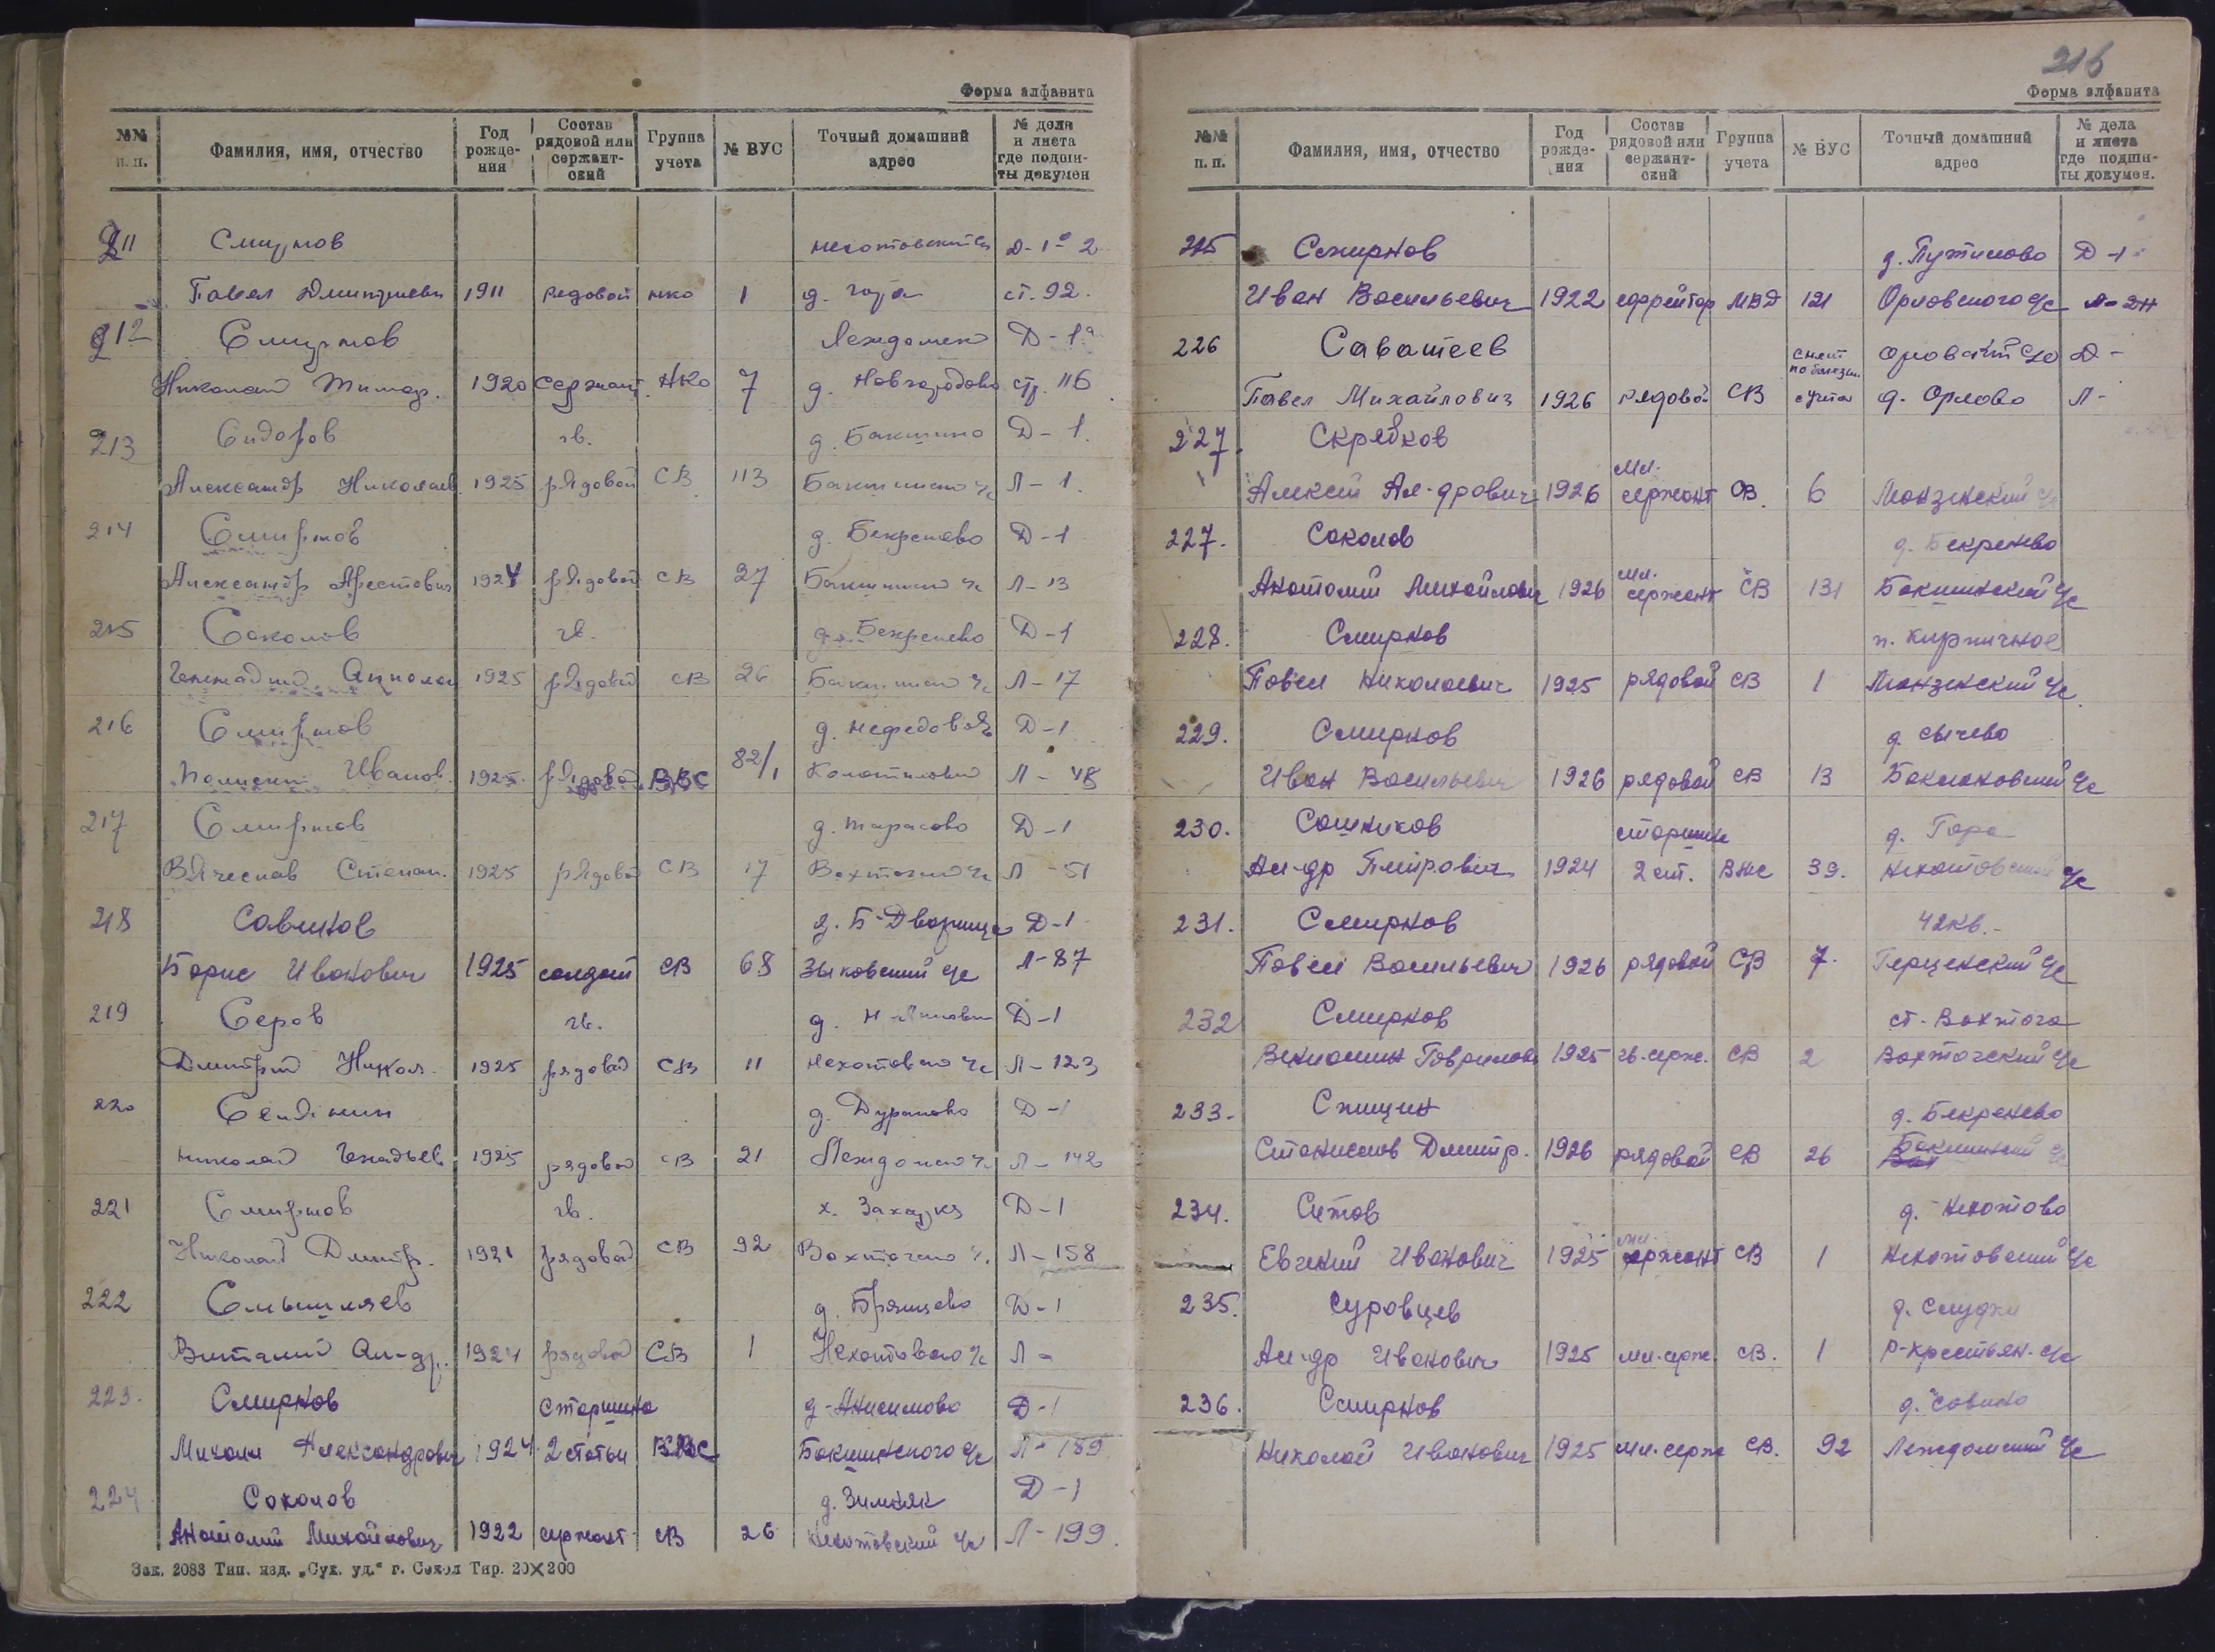 Форма алфавита
№№ п.п. Фамилия, имя, отчество Год рождения Состав рядовой или сержантский Группа учета № ВУС Точный домашний адрес № дела и листа где подшиты докумен
211 Смирнов Д-1а 2
Павел Дмитриевич 1911 рядовой нко 1 д. гора ст. 92.
212 Смирнов Леждомск Д-1а
Николай Тимоф. 1920 сержант НКО 7 д. Новгородово стр. 116
213 Сидоров гв. д. Бакшино Д-1.
Александр Николаев 1925 рядовой СВ 113 Л-1.
214 Смирнов д. Бекренево Д-1
Александр Арестович 1924 рядовой СВ 27 Л-13
215 Соколов гв. д. Бекренево Д-1
Геннадий 1925 рядовой СВ 26 Л-17
216 Смирнов Д-1
Иванов. 1925 рядовой ВВС 82/1 Л-48
217 Смирнов д. Тарасово Д-1
Вячеслав Степан. 1925 рядовой СВ 17 Л-51
218 Савинов д. Б-Дворище Д-1
Борис Иванович 1925 солдат СВ 68 Зыковский с/с Л-87
219 Серов гв. Д-1
Дмитрий Никол. 1925 рядовой СВ 11 Л-123
220 д. Дураково Д-1
Николай Генадьев 1925 рядовой СВ 21 Л-142
221 Смирнов гв. Д-1
Николай Дмитр. 1921 рядовой СВ 92 Л-158
222 Смышляев д. Брянцево Д-1
Виталий Ал-др. 1924 рядовой СВ 1 Л-
223. Смирнов старшина д-Анисимово Д-1
Михаил Александрович 1924 2 статьи ВМС Бакшинского с/с Л-189
224 Соколов д. Зимняк Д-1
Анатолий Михайлович 1922 сержант СВ 26 Нехотовский с/с Л-199.
Зак. 2083 Тип. изд. „Сух. уд." г. Сокол Тир. 20×200
216
Форма алфавита
№№ п.п. Фамилия, имя, отчество Год рождения Состав рядовой или сержантский Группа учета № ВУС Точный домашний адрес № дела и листа где подшиты докумен.
225 Смирнов д. Путилово Д-1
Иван Васильевич 1922 ефрейтор МВД 121 Орловского с/с
226 Саватеев снят по болезни Д-
Павел Михайлович 1926 рядовой СВ с учета д. Орлово Л-
227. Скрябков
Алексей Ал-дрович 1926 мл. сержант СВ. 6 Монзенский с/с
227. Соколов д. Бекренево
Анатолий Михайлович 1926 мл. сержант СВ 131 Бакшинский с/с
228. Смирнов п. Кирпичное
Павел Николаевич 1925 рядовой СВ 1 Монзенский с/с
229. Смирнов д. Сычево
Иван Васильевич 1926 рядовой СВ 13 с/с
230. Сошников старшина д. Гора
Ал-др Петрович 1924 2 ст. ВМС 39. Нехотовский с/с
231. Смирнов 42кв.
Павел Васильевич 1926 рядовой СВ 7. Герценский с/с
232 Смирнов ст. Вохтога
Вениамин Гаврилов 1925 гв. серж. СВ 2 Вохтогский с/с
233. Спицин д. Бекренево
Станислав Дмитр. 1926 рядовой СВ 26 Бакшинский с/с
234. Ситов д. Нехотово
Евгений Иванович 1925 мл. сержант СВ 1 Нехотовский с/с
235. Суровцев д. Слудки
Ал-др Иванович 1925 мл. серж. СВ. 1 Р-крестьян. с/с
236. Смирнов д. Савино
Николай Иванович 1925 мл. серж СВ. 92 Леждомский с/с